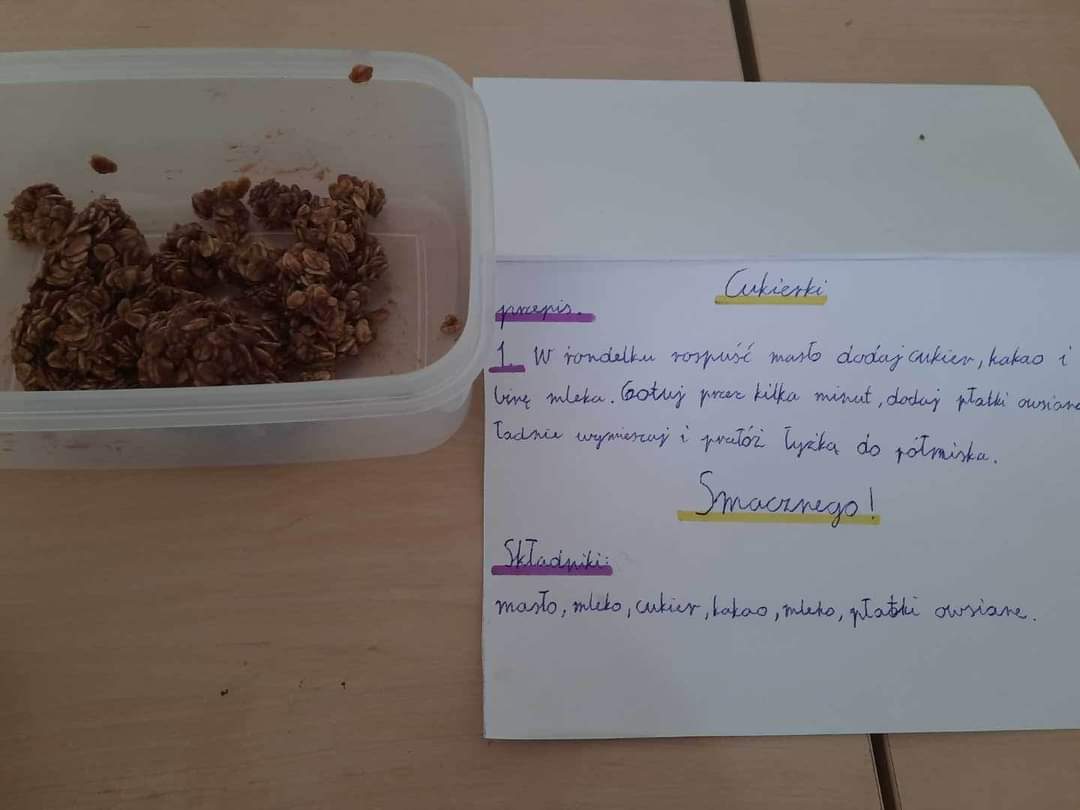 Cukierki
przepis.
1. W rondelku rospuść masło dodaj cukier, kakao i
mleka. Gotuj przez kilka minut, dodaj płatki owsiane
ładnie wymieszaj i łyżką do półmiska.
Smacznego!
Składniki:
masło, mleko, cukier, kakao, mleko, płatki owsiane.